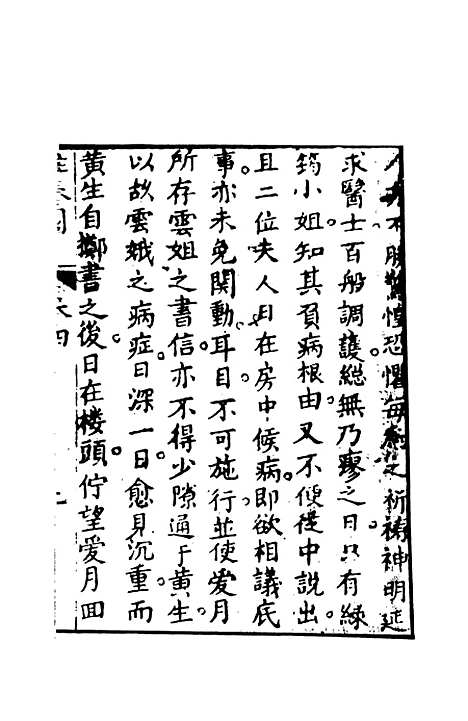 人亦不勝驚惶恐懼每處之祈禱神明延
求醫士百般調護総無乃瘳之日只有綠
筠小姐知其頁病根由又不便從中説出
且二位夫人日在房中候病即欲相議底
事亦未免関動耳目不可施行並使爱月
所存雲姐之書信亦不得少隙通于黄生
以故雲娥之病症日深一日愈見沉重而
黄生自擲書之後日在楼頭佇望爱月回
卷四